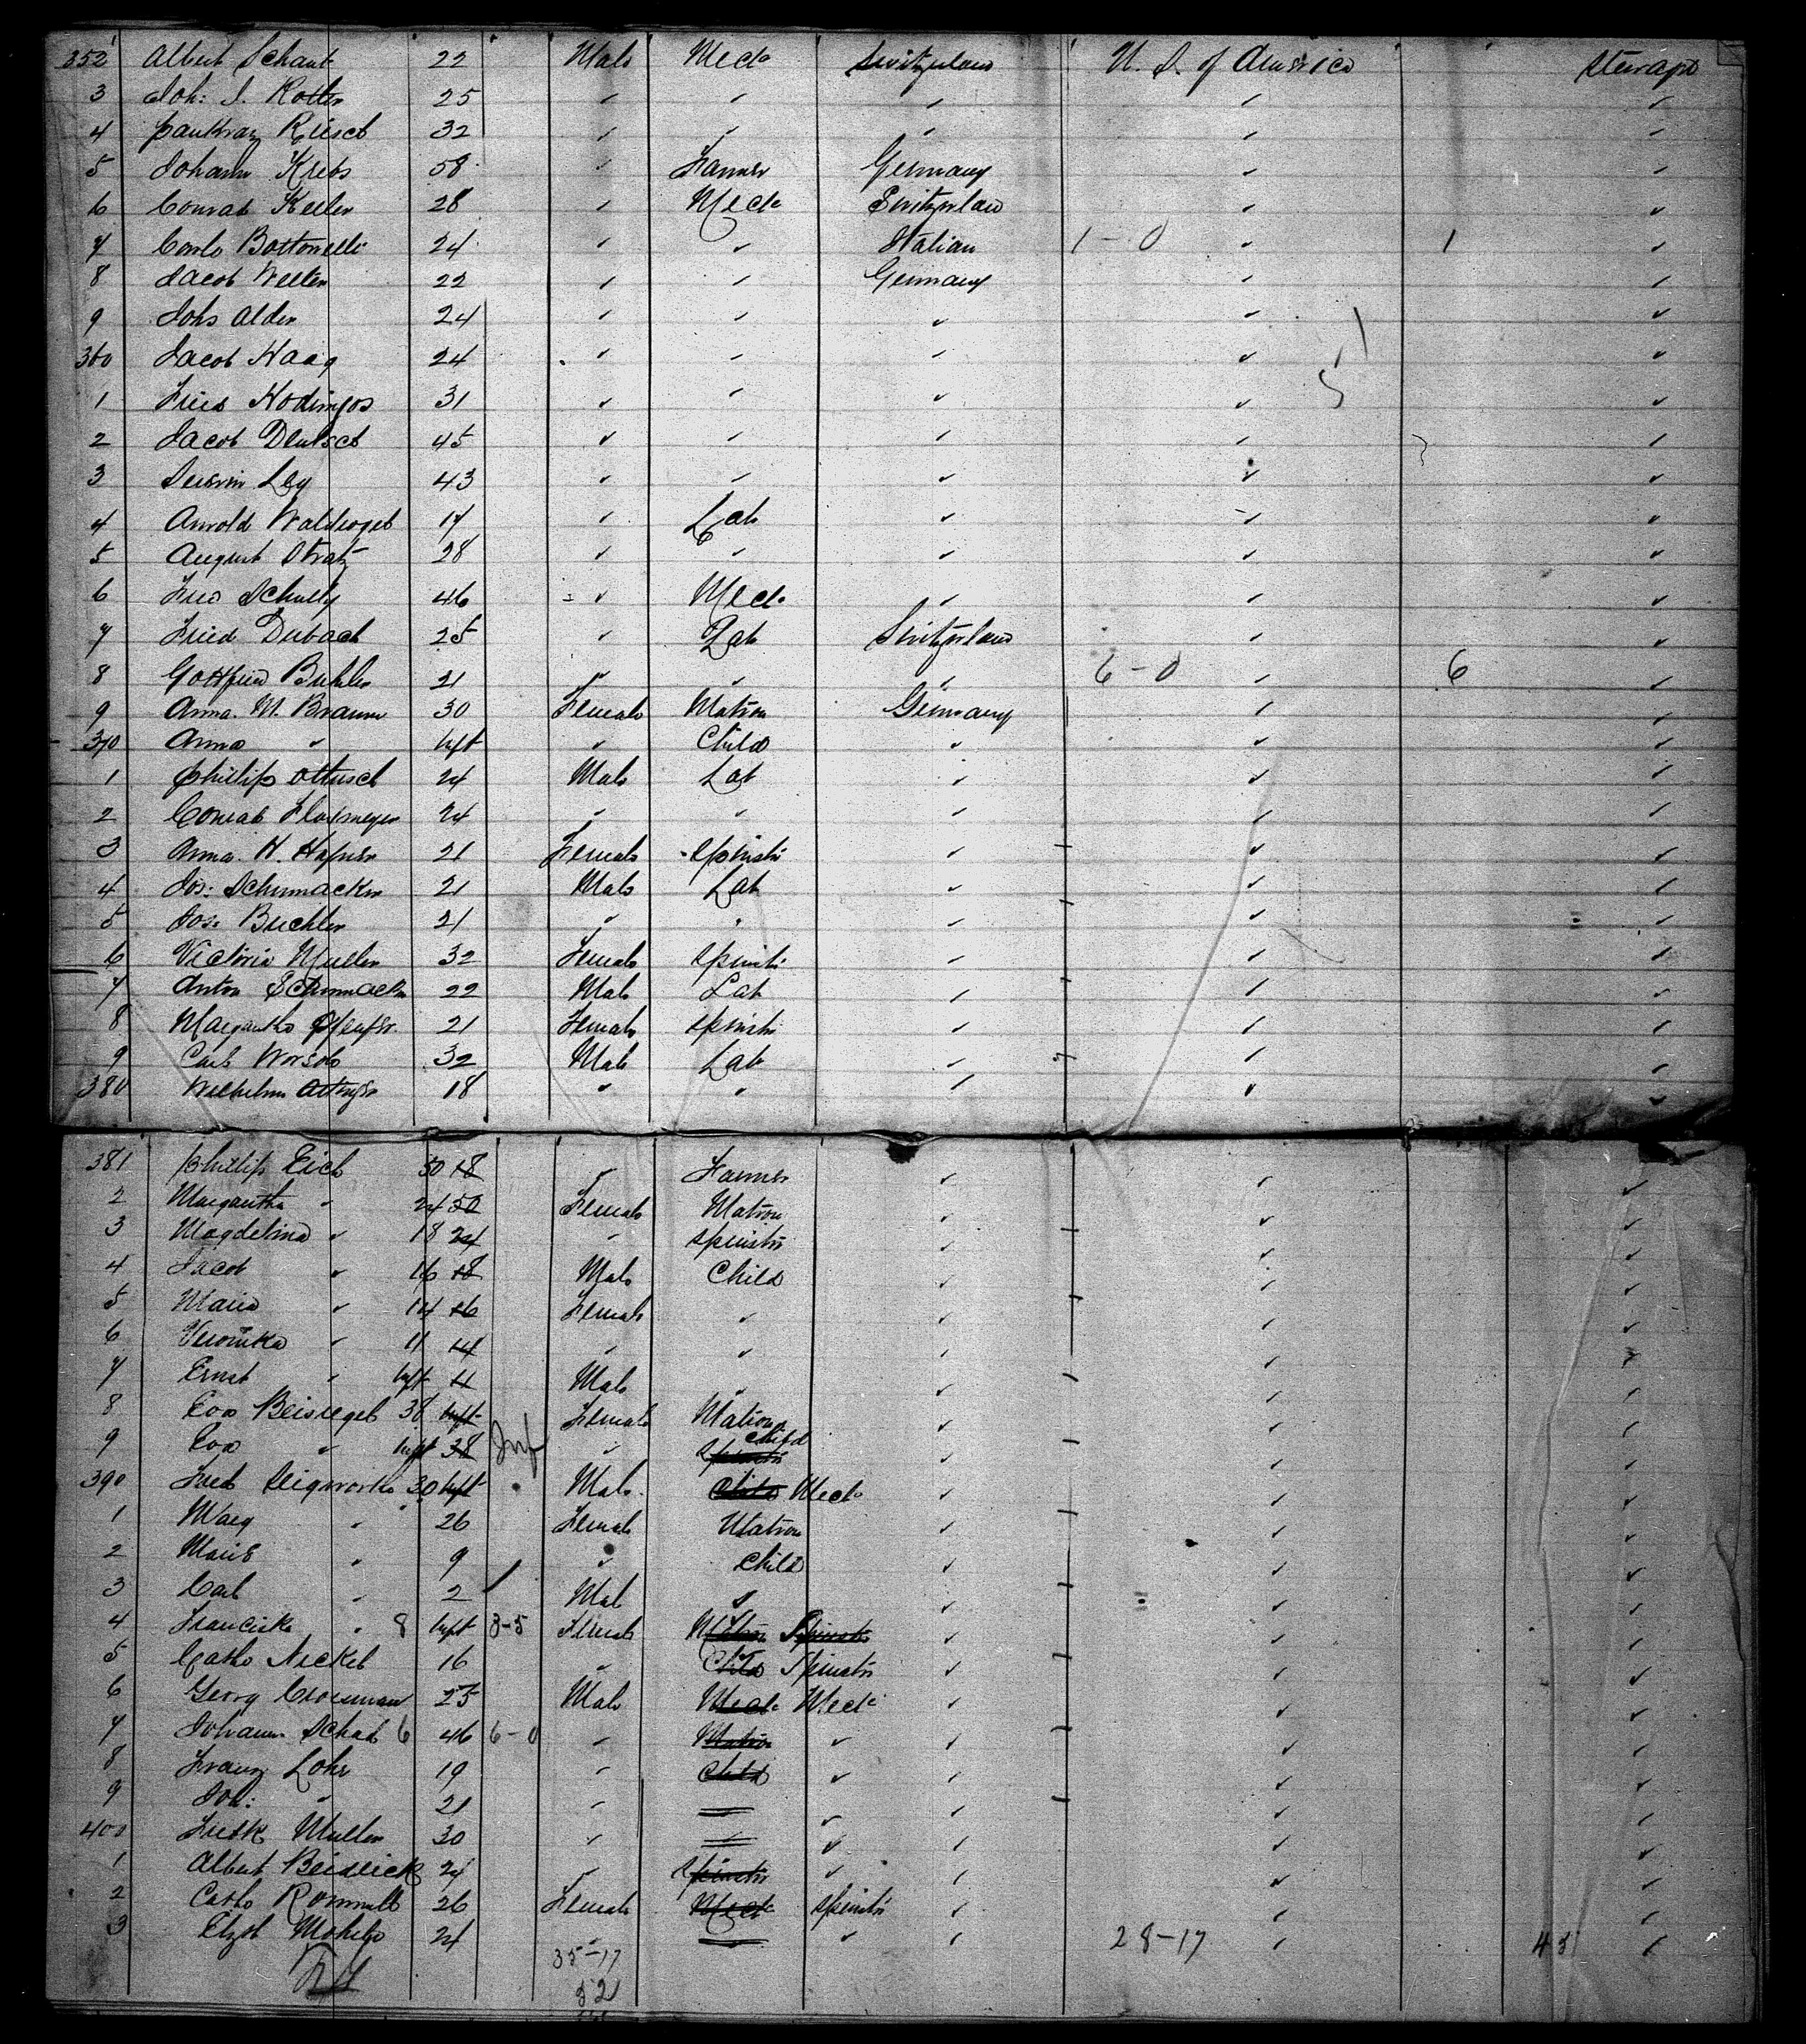 352 Albert Schaub 22 Male Mech Switzerland U. S. of America Steerage
3 Joh: J. Kotter 25 " " " " "
4 Pankraz Rusch 32 " " " " "
5 Johann Krebs 58 " Farmer Germany " "
6 Conrad Keller 28 " Mech Switzerland " "
7 Carlo Bottonelli 24 " " Italian 1-0 " 1 "
8 Jacob Welter 22 " " Germany " "
9 Johs Alder 24 " " " " "
360 Jacob Haag 24 " " " " "
1 Fried 31 " " " " "
2 Jacob Deutsch 45 " " " " "
3 Ley 43 " " " " "
4 Arnold Waldvogel 17 " Lab " " "
5 August Stratz 28 " " " " "
6 Fred Schully 46 " Mech " " "
7 Fried Dubach 25 " Lab Switzerland " "
8 Gottfried Buhler 21 " " " 6-0 " 6 "
9 Anna. M. Braunn 30 Female Matron Germany " "
370 Anna " Inft " Child " " "
1 Phillip 24 Male Lab " " "
2 Conrad 24 " " " " "
3 Anna. H. Hafner 21 Female Spinstr " " "
4 Jos: Schumacker 21 Male Lab " " "
5 Jos: Buchler 21 " " " " "
6 Victoria Muller 32 Female Spinstr " " "
7 Anton Schumacker 22 Male Lab " " "
8 Margaretha 21 Female Spinstr " " "
9 Carl 32 Male Lab " " "
380 Wilhelm 18 " " " " "
381 Phillip Eich 50 18 " Farmer " " "
2 Margaretha " 24 50 Female Matron " " "
3 Magdelina " 18 24 " Spinstr " " "
4 Jacob " 16 18 Male Child " " "
5 Maria " 14 16 Female " " " "
6 Veronika " 11 14 " " " " "
7 Ernst " Inft 11 Male " " " "
8 Eva Beisiegel 38 Inft Female Matron " " "
9 Eva " Inft 38 Inf " Spinstr Child " " "
390 Fred 30 Inft Male Child Mech " " "
1 Marg " 26 Female Matron " " "
2 Marie " 9 " Child " " "
3 Carl " 2 Male " " " "
4 Franciska " 8 Inft 3-5 Female Matron Spinstr " " "
5 Catho Nickel 16 " Child Spinstr " " "
6 Georg 25 Male Mech Mech " " "
7 Johann Schad 6 46 6-0 " Matron " " " "
8 Franz Lohr 19 " Child " " " "
9 Joh: " 21 " " " " "
400 Fredk Muller 30 " " " " "
1 Albert 24 " Spinstr " " " "
2 Catho Rommell 26 Female Mech Spinstr " " "
3 Elizb 24 " " " 28-17 " 45 "
35-17
52